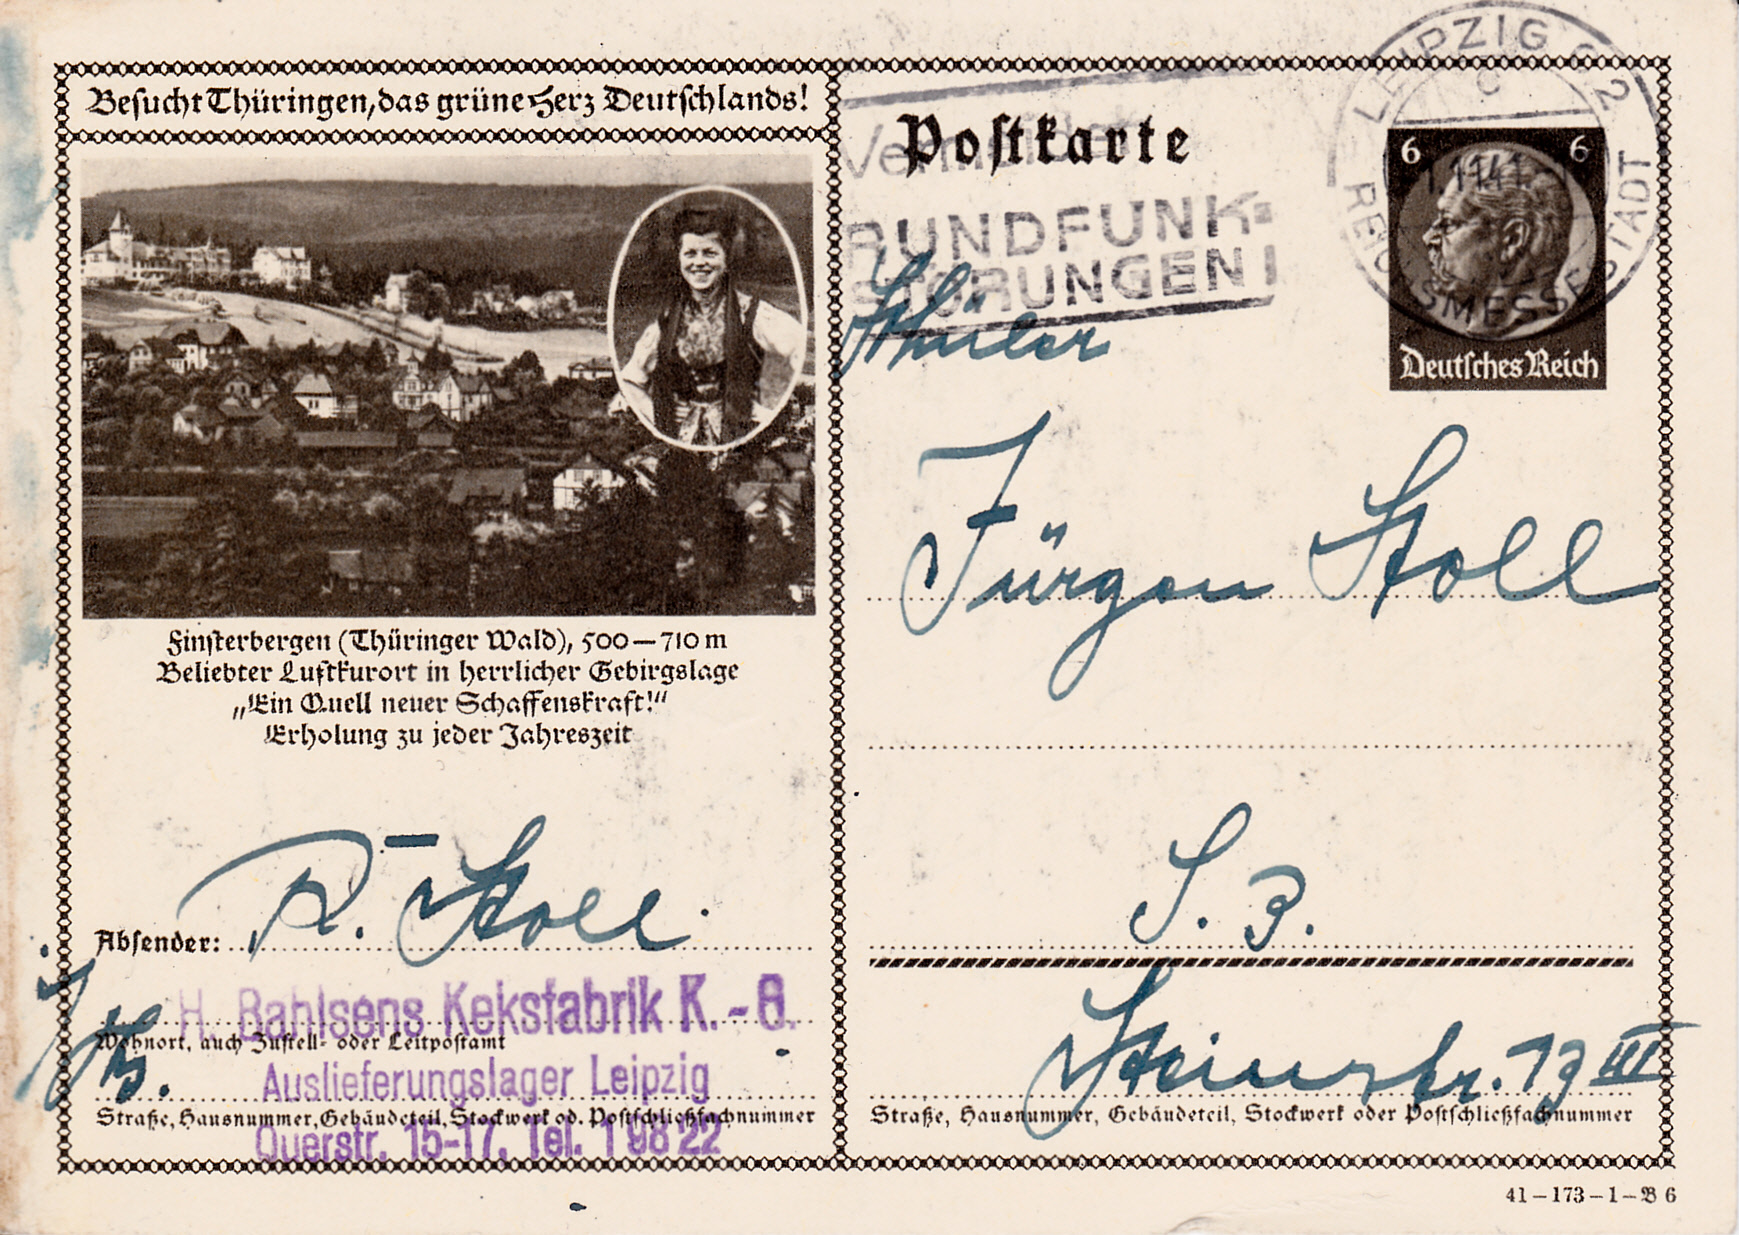 Besucht Thüringen, das grüne Herz Deutschlands!
Finsterbergen (Thüringer Wald), 500—710 m
Beliebter Luftkurort in herrlicher Gebirgslage
„Ein Quell neuer Schaffenskraft!“
Erholung zu jeder Jahreszeit
Absender: R. Stoll.
H. Bahlsens Keksfabrik K.-G.
Wohnort, auch Zustell- oder Leitpostamt
Auslieferungslager Leipzig
Straße, Hausnummer, Gebäudeteil, Stockwerk od. Postschließfachnummer
Querstr. 15-17, Tel. 1 98 22
Postkarte
RUNDFUNK-
STÖRUNGEN!
LEIPZIG C 2
C
REICHSMESSESTADT
6 6
Deutsches Reich
Schüler
Jürgen Stoll
S. 3.
Steinstr. 73 III
Straße, Hausnummer, Gebäudeteil, Stockwerk oder Postschließfachnummer
41—173—1—B 6